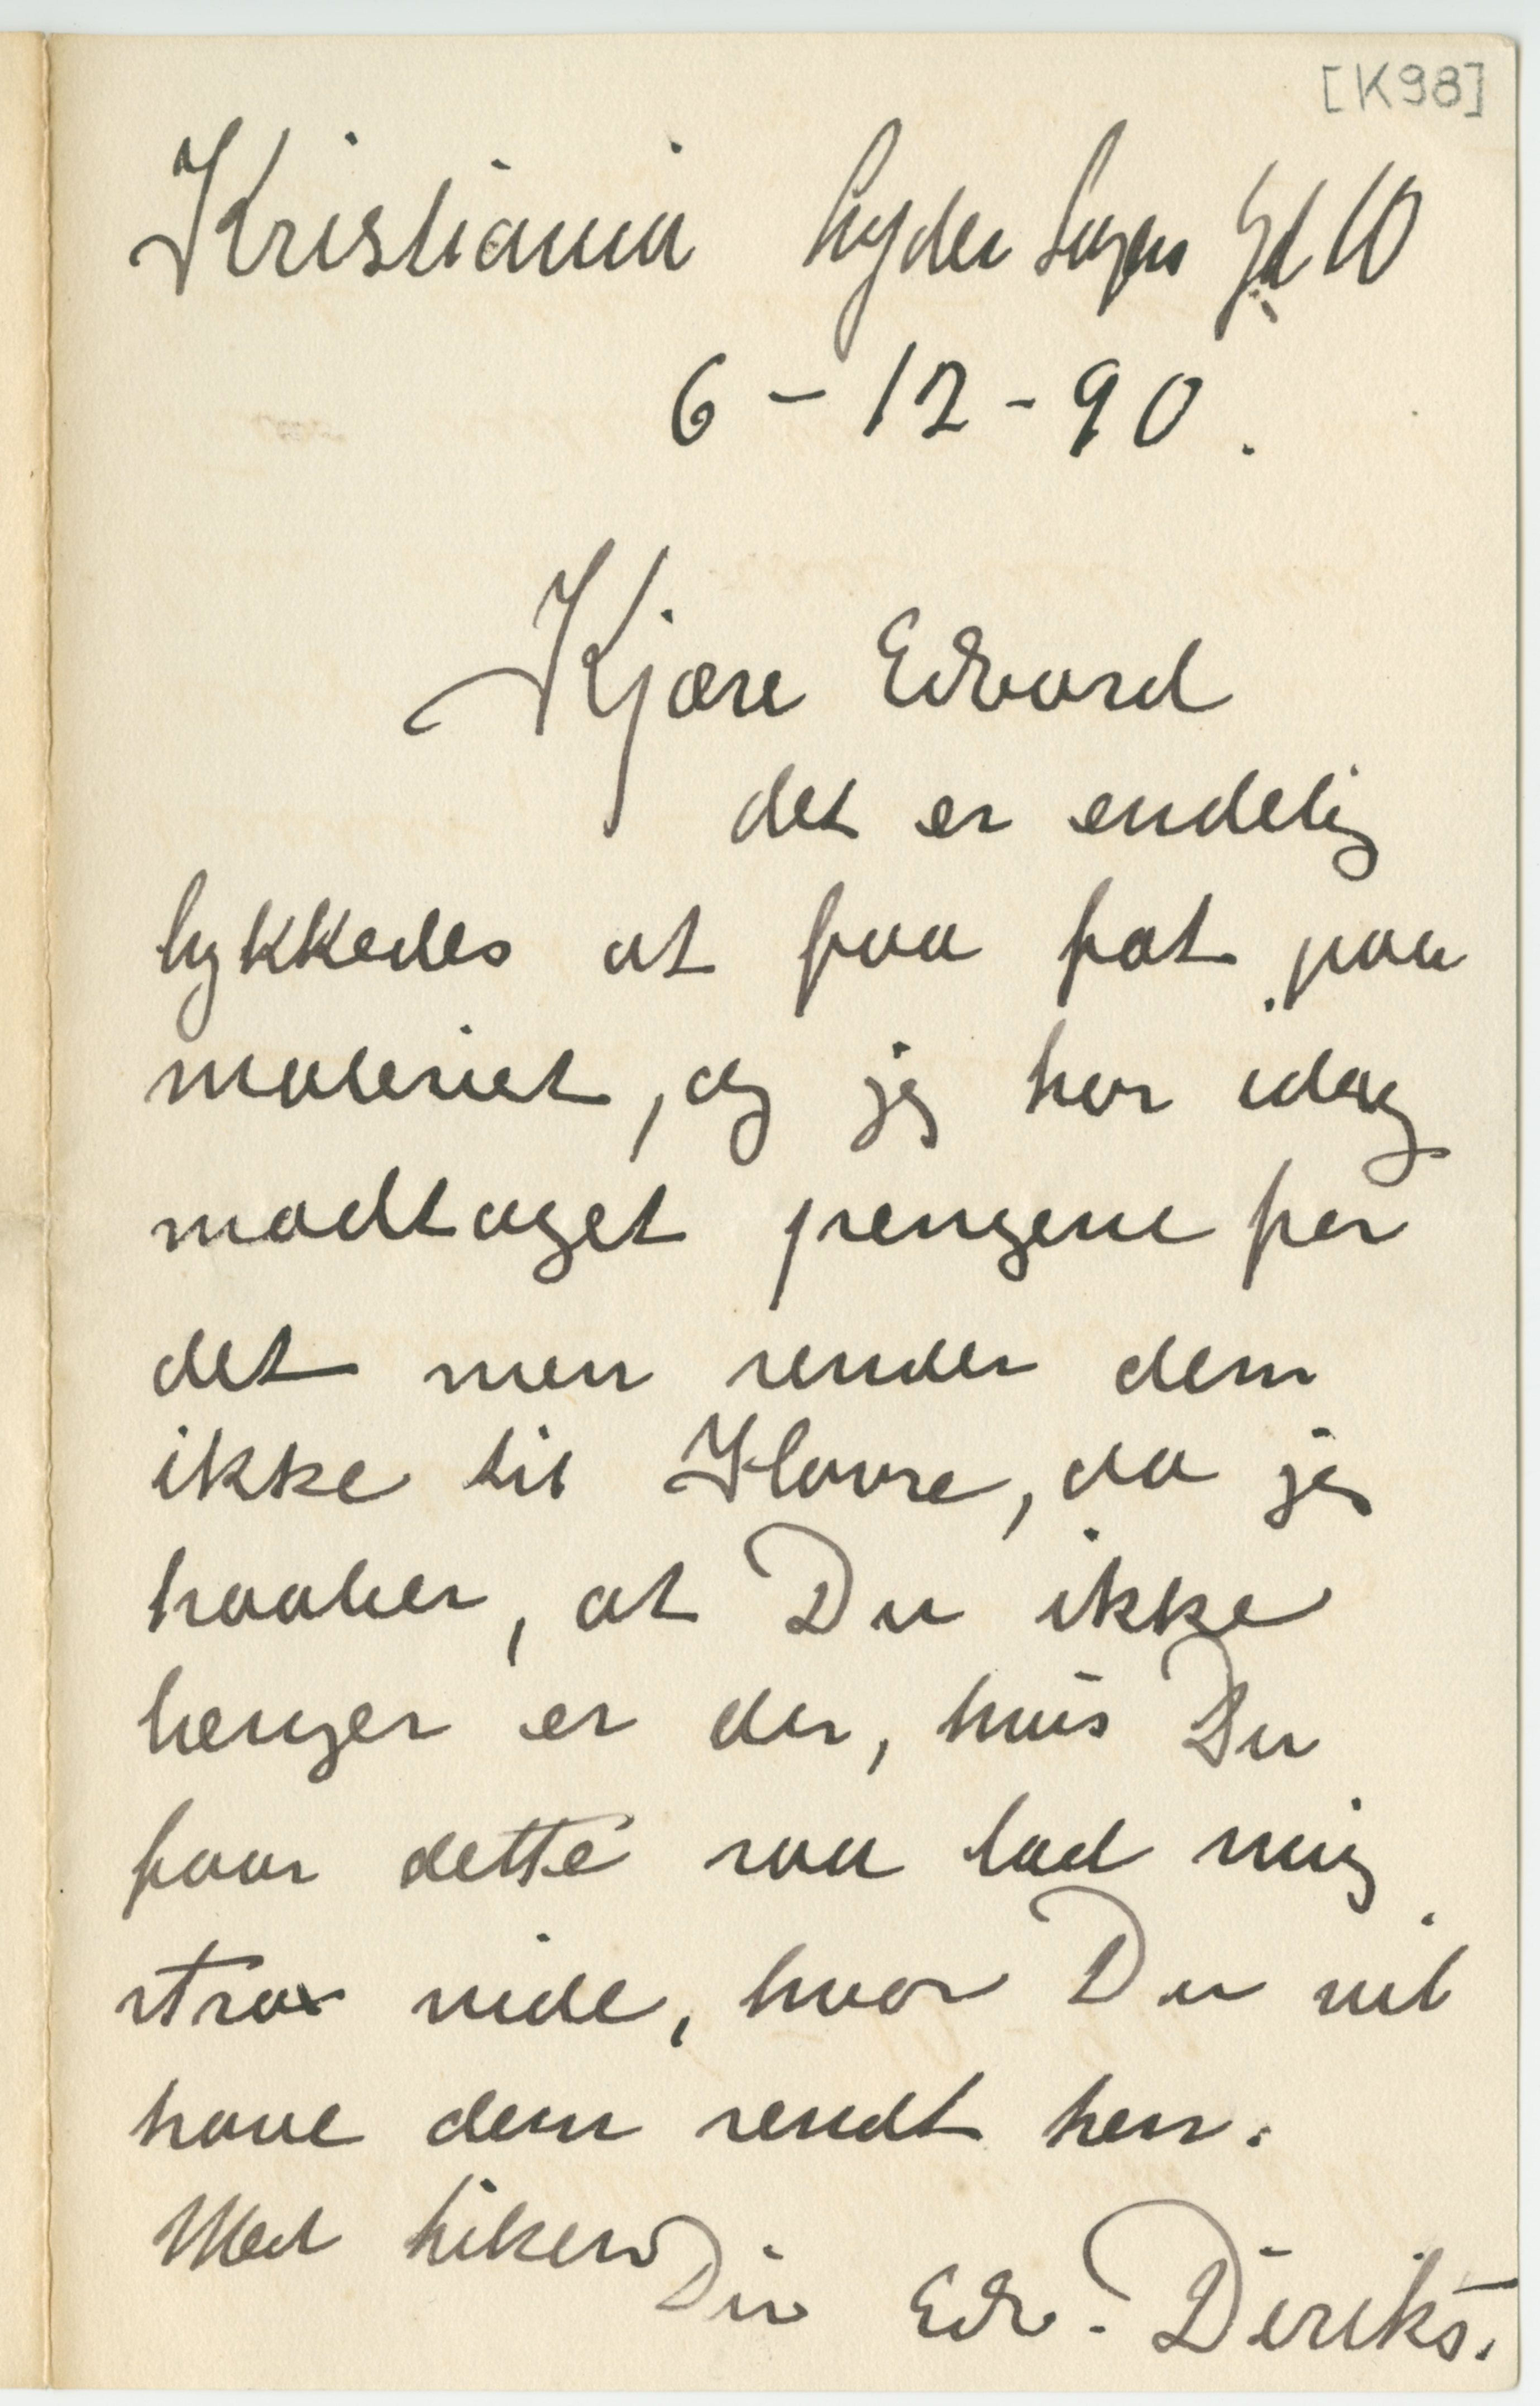 [K98]
Kristiania Lyder Sagens Gd 10
6-12-90.
Kjære Edvard
det er endelig
lykkedes at faa fat paa
maleriet, og jeg har idag
modtaget pengene for
det men sender dem
ikke til Havre, da jeg
haaber, at Du ikke
længer er der, hvis Du
faar dette saa lad mig
strax vide, hvor Du vil
have dem sendt hen.
Med hilsen Din Edv. Diriks.